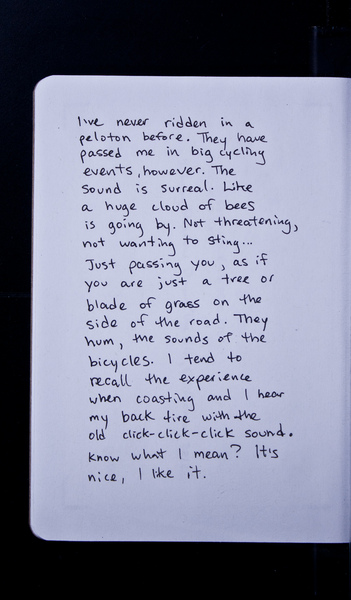 I've never ridden in a
peloton before. They have
passed me in big cycling
events, however. The
sound is surreal. Like
a huge cloud of bees
is going by. Not threatening,
not wanting to sting...
Just passing you, as if
you are just a tree or
blade of grass on the
side of the road. They
hum, the sounds of the
bicycles. I tend to
recall the experience
when coasting and I hear
my back tire with the
old click-click-click sound.
Know what I mean? It's
nice, I like it.